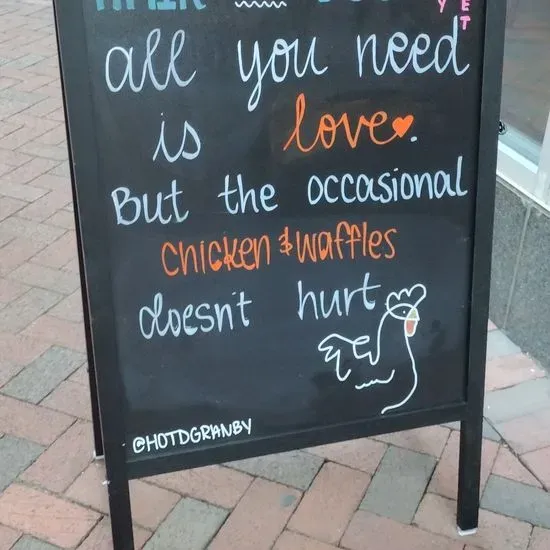 all you need
is love.
But the occasional
chicken & waffles
doesn't hurt
@HOTDGRANBY